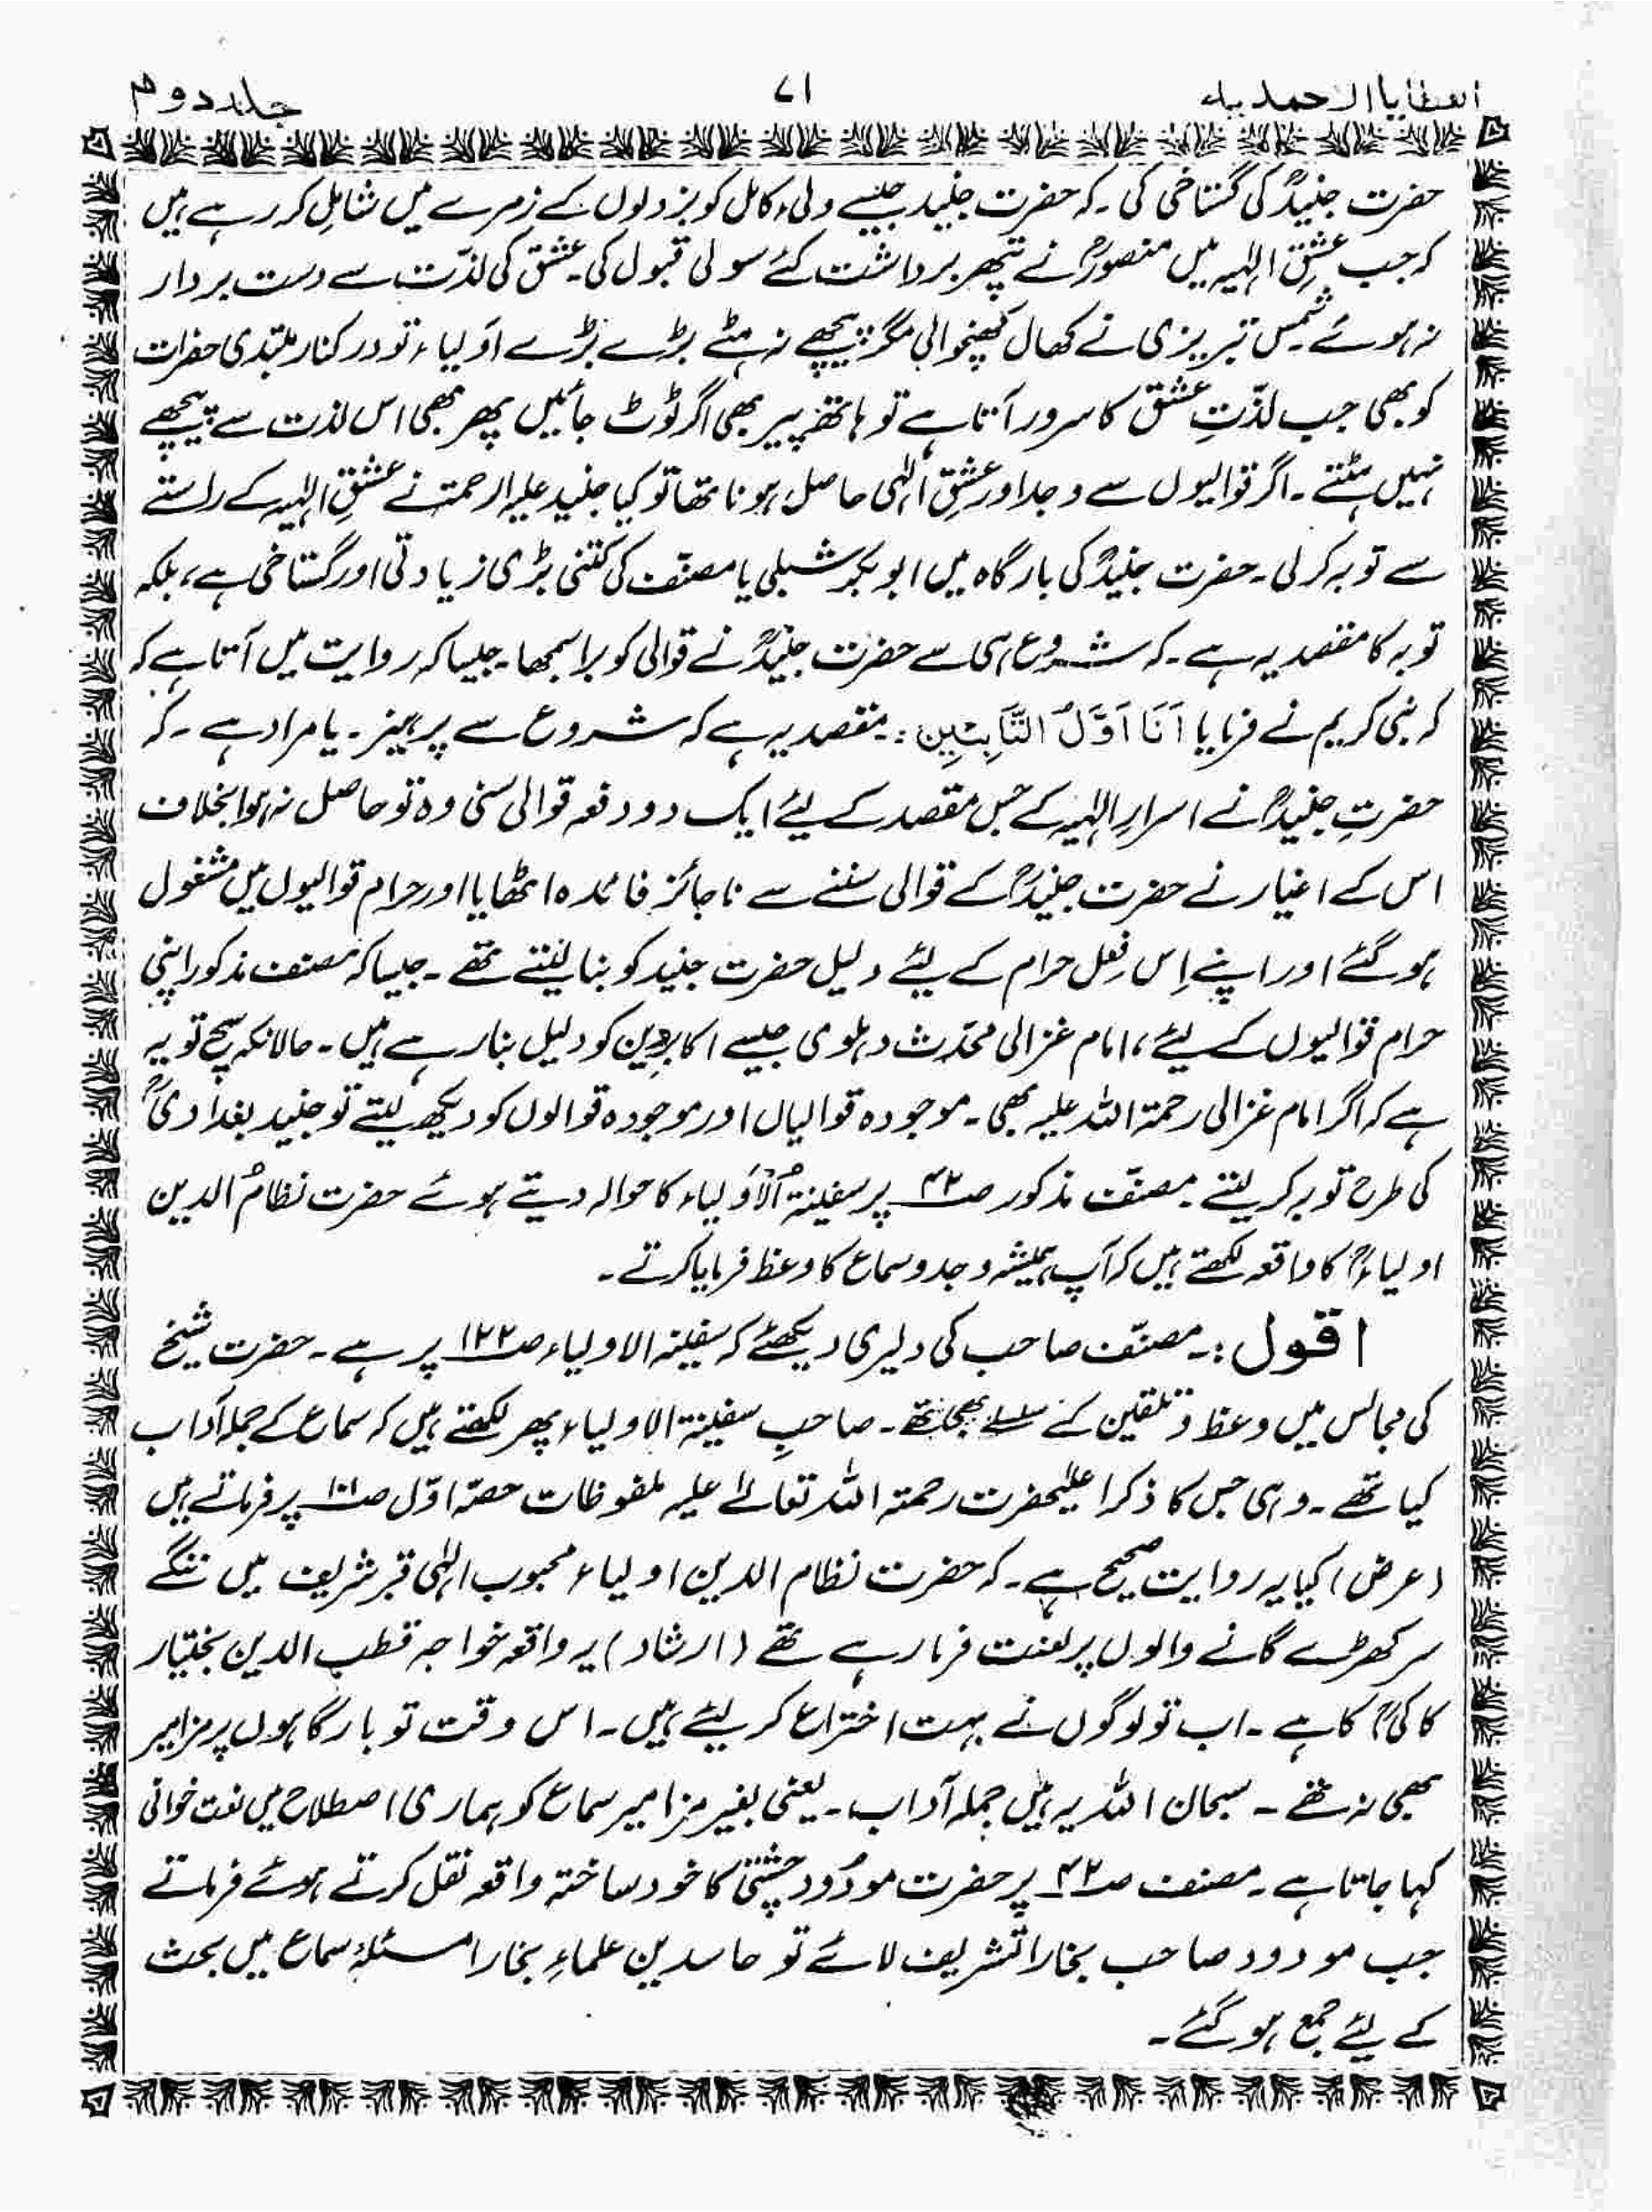 العطایا الاحمدیہ ۷۱ جلد دوم
حضرت جنیدؒ کی گستاخی کی۔ کہ حضرت جنید جیسے ولیء کامل کو بزدلوں کے زمرے میں شامل کر رہے ہیں
کہ جب عشقِ الٰہیہ میں منصورؒ نے پتھر برداشت کئے سولی قبول کی۔ عشق کی لذّت سے دست بردار
نہ ہوئے شمس تبریزی نے کھال کھنچوالی مگر پیچھے نہ ہٹے بڑے بڑے اَولیاء تو درکنار مبتدی حضرات
کو بھی جب لذّتِ عشق کا سرور آتا ہے تو ہاتھ پیر بھی اگر ٹوٹ جائیں پھر بھی اس لذت سے پیچھے
نہیں ہٹتے۔ اگر قوالیوں سے وجد اور عشقِ الٰہی حاصل ہونا تھا تو کیا جنید علیہ الرحمتہ نے عشقِ الٰہیہ کے راستے
سے توبہ کرلی۔ حضرت جنیدؒ کی بارگاہ میں ابوبکر شبلی یا مصنّف کی کتنی بڑی زیادتی اور گستاخی ہے، بلکہ
توبہ کا مقصد یہ ہے۔ کہ شروع ہی سے حضرت جنیدؒ نے قوالی کو برا سمجھا۔ جیسا کہ روایت میں آتا ہے کہ
کہ نبی کریم نے فرمایا اَنَا اَوَّلُ التَّائِبِیْنِ: مقصد یہ ہے کہ شروع سے پرہیز۔ یا مراد ہے۔ کہ
حضرتِ جنیدؒ نے اسرارِ الٰہیہ کے جس مقصد کے لیئے ایک دو دفعہ قوالی سنی وہ تو حاصل نہ ہوا بخلاف
اس کے اغیار نے حضرت جنیدؒ کے قوالی سننے سے ناجائز فائدہ اٹھایا اور حرام قوالیوں میں مشغول
ہوگئے اور اپنے اِس فعل حرام کے لیئے دلیل حضرت جنید کو بنا لیتے تھے۔ جیسا کہ مصنف مذکور اپنی
حرام قوالیوں کے لیئے، امام غزالی محدّث دہلوی جیسے اکابرین کو دلیل بنا رہے ہیں۔ حالانکہ سچ تو یہ
ہے کہ اگر امام غزالی رحمۃ اللہ علیہ بھی۔ موجودہ قوالیاں اور موجودہ قوالوں کو دیکھ لیتے تو جنید بغدادیؒ
کی طرح توبہ کر لیتے۔ مصنّف مذکور صـ۴۲ پر سفینۃُ الْاَوْلیاء کا حوالہ دیتے ہوئے حضرت نظامُ الدین
اولیاءؒ کا واقعہ لکھتے ہیں کہ آپ ہمیشہ وجد و سماع کا وعظ فرمایا کرتے۔
اقول:۔ مصنّف صاحب کی دلیری دیکھئے کہ سفینۃ الاولیاء صـ۱۲۲ پر ہے۔ حضرت شیخ
کی مجالس میں وعظ و تلقین کے تھے۔ صاحبِ سفینۃ الاولیاء پھر لکھتے ہیں کہ سماع کے جملہ آداب
کیا تھے۔ وہی جس کا ذکر اعلیٰحضرت رحمتہ اللہ تعالےٰ علیہ ملفوظات حصّہ اوّل صـ۱۰۱ پر فرماتے ہیں
(عرض) کیا یہ روایت صحیح ہے۔ کہ حضرت نظام الدین اولیاء محبوب الٰہی قبر شریف میں ننگے
سر کھڑے گانے والوں پر لعنت فرما رہے تھے (ارشاد) یہ واقعہ خواجہ قطب الدین بختیار
کاکیؒ کا ہے۔ اب تو لوگوں نے بہت اختراع کر لیئے ہیں۔ اس وقت تو بارگاہوں پر مزامیر
بھی نہ تھے۔ سبحان اللہ یہ ہیں جملہ آداب۔ یعنی بغیر مزامیر سماع کو ہماری اصطلاح میں نعت خوانی
کہا جاتا ہے۔ مصنف صـ۴۲ پر حضرت مودُود چشتیؒ کا خود ساختہ واقعہ نقل کرتے ہوئے فرماتے
جب مودود صاحب بخارا تشریف لائے تو حاسدین علماءِ بخارا مسئلۂ سماع میں بحث
کے لیئے جمع ہوگئے۔